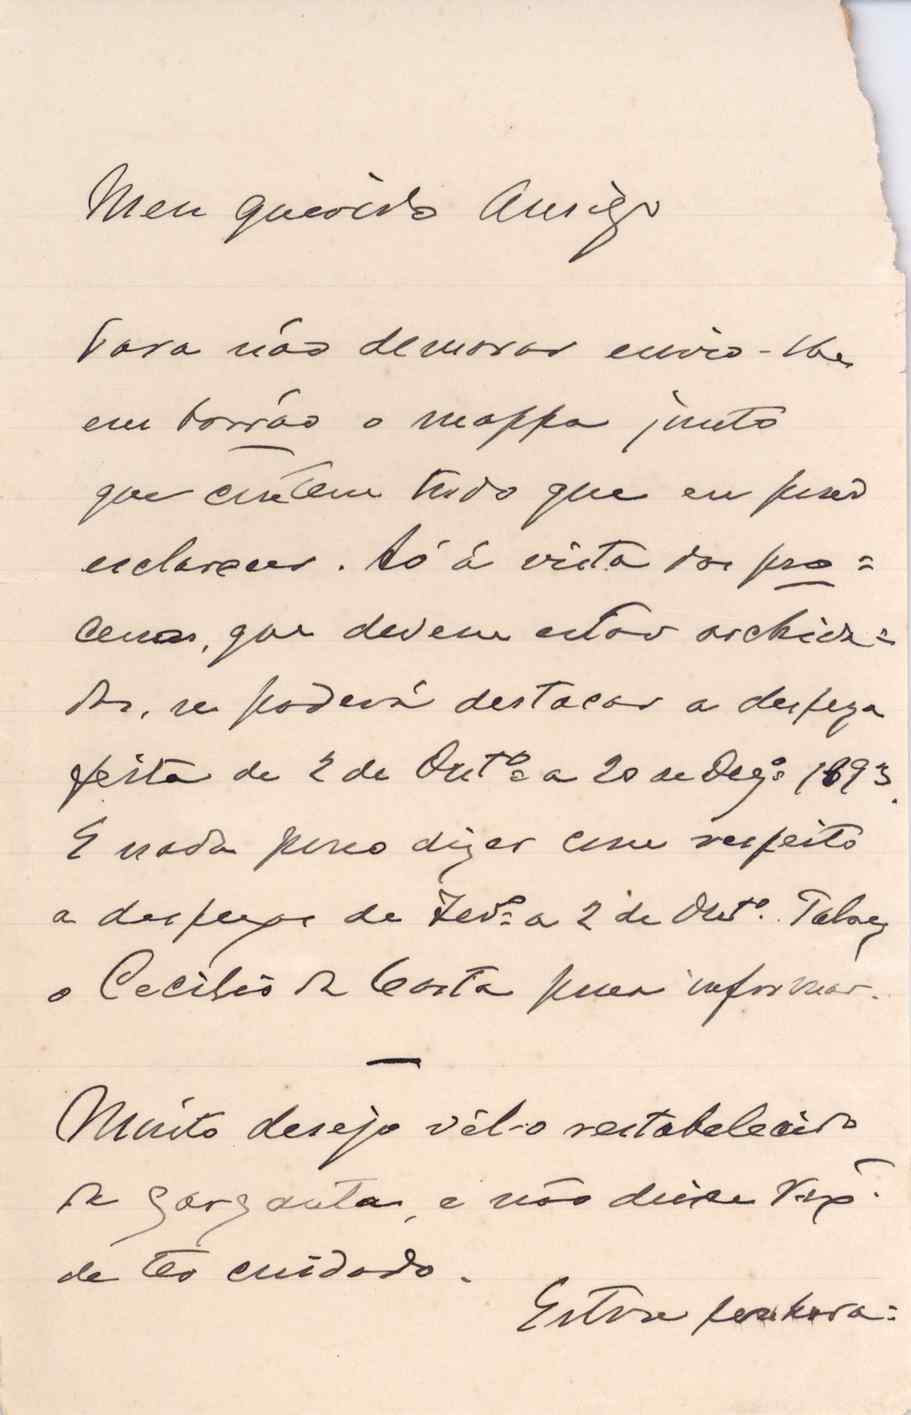 Meu querido Amigo
Para não demorar envio-lhe
em borrão o mappa junto
que contem tudo que eu posso
esclarecer. Só á vista dos pro=
cessos, que devem estar archiva=
dos, se poderá destacar a despeza
feita de 2 de Outº. a 20 de Dezº. 1893.
E nada posso dizer com respeito
a despezas de Fevº. a 2 de Outº. Talvez
o Cecilio da Costa possa informar.
Muito desejo vêl-o restabelecido
da garganta, e não deixe V. Exª.
de ter cuidado.
Estou penhora=